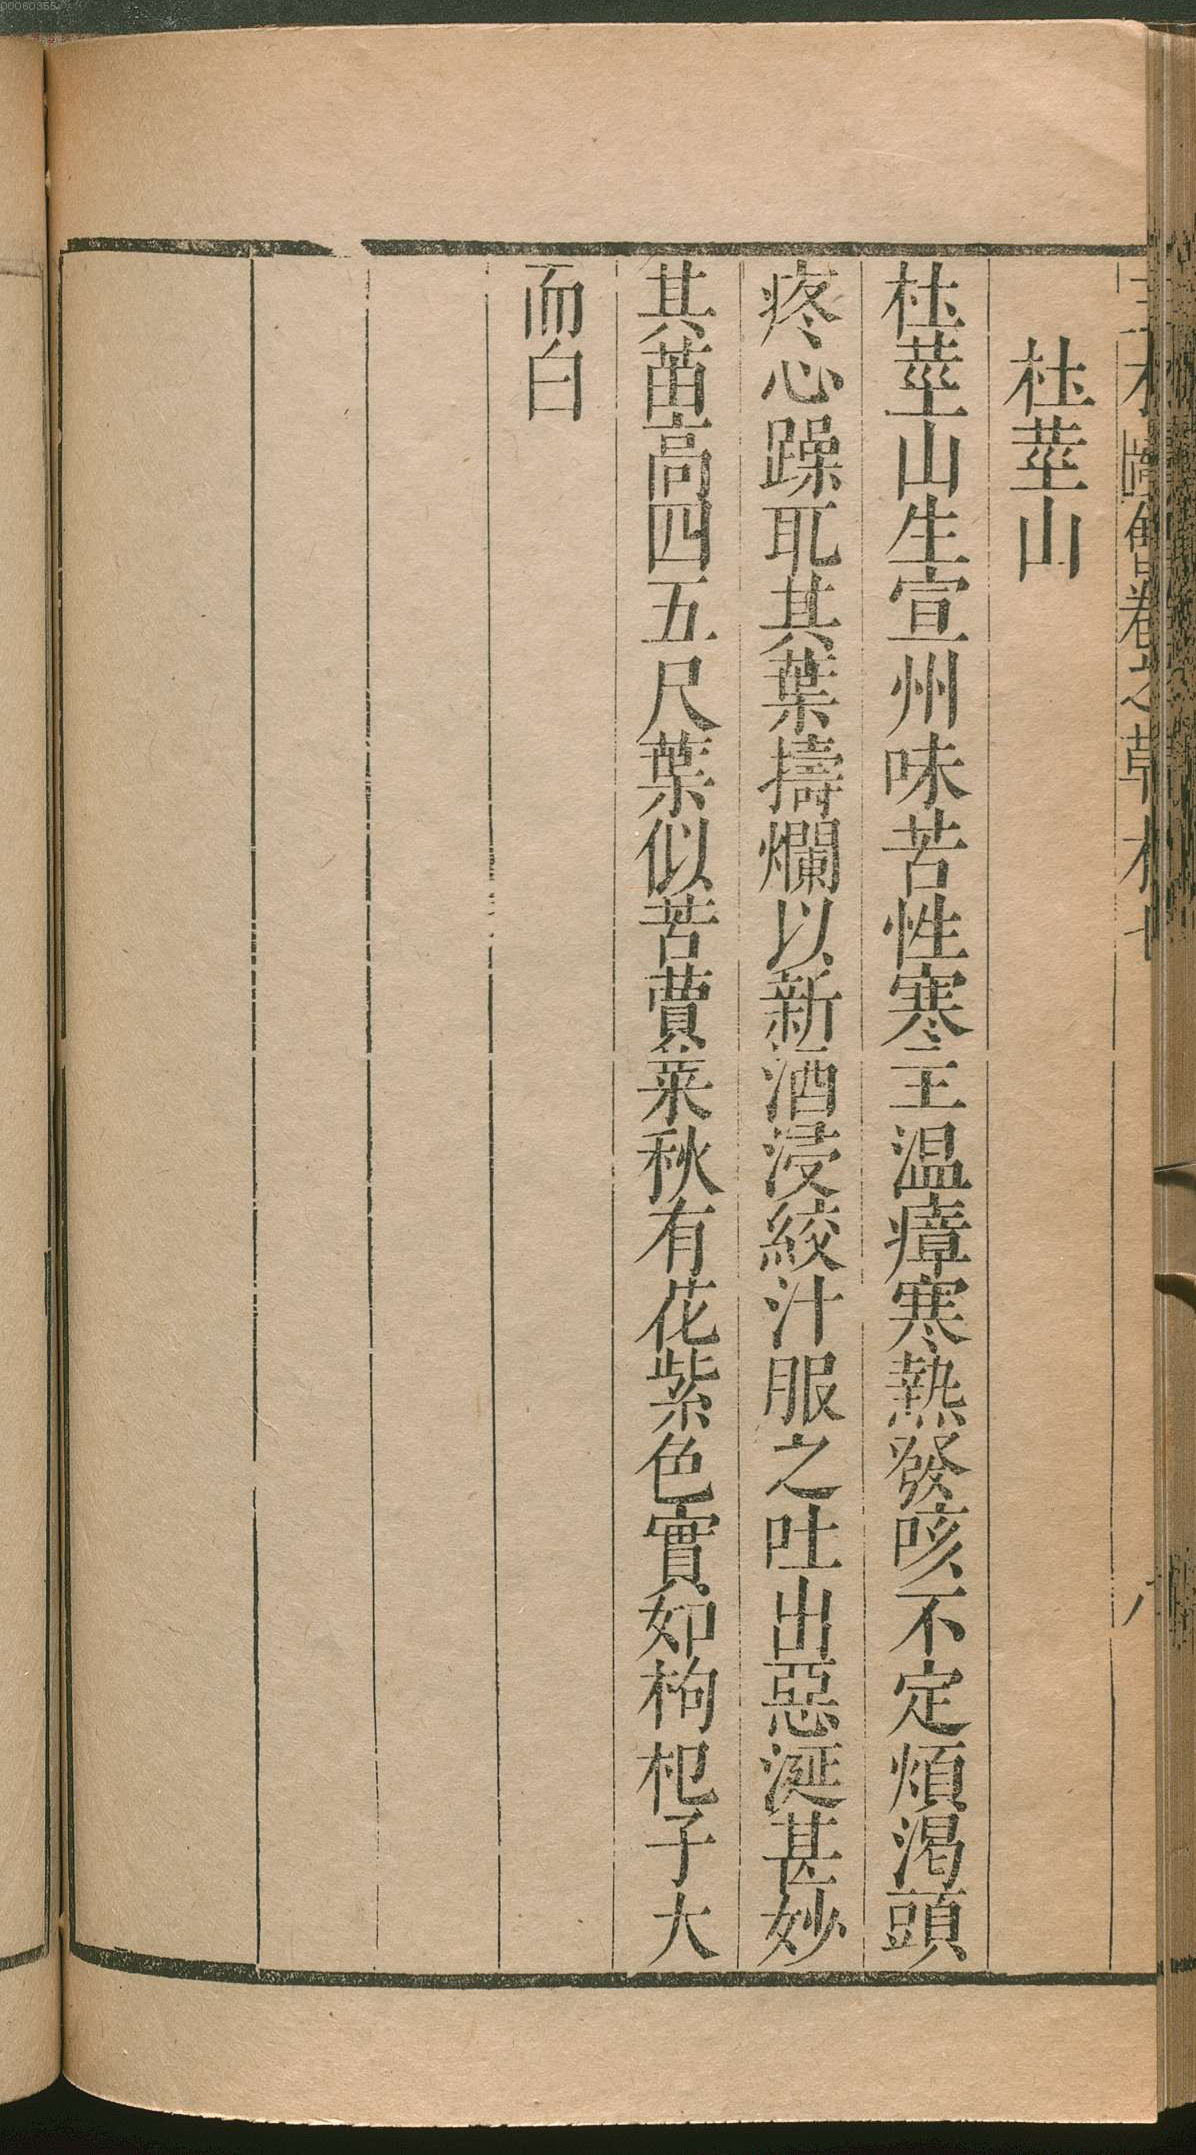 杜莖山
杜莖山生宣州味苦性寒主温瘴寒熱發咳不定煩渴頭
疼心躁取其葉擣爛以新酒浸絞汁服之吐出惡涎甚妙
其苗高四五尺葉似苦蕒菜秋有花紫色實如枸杞子大
而白
00060355